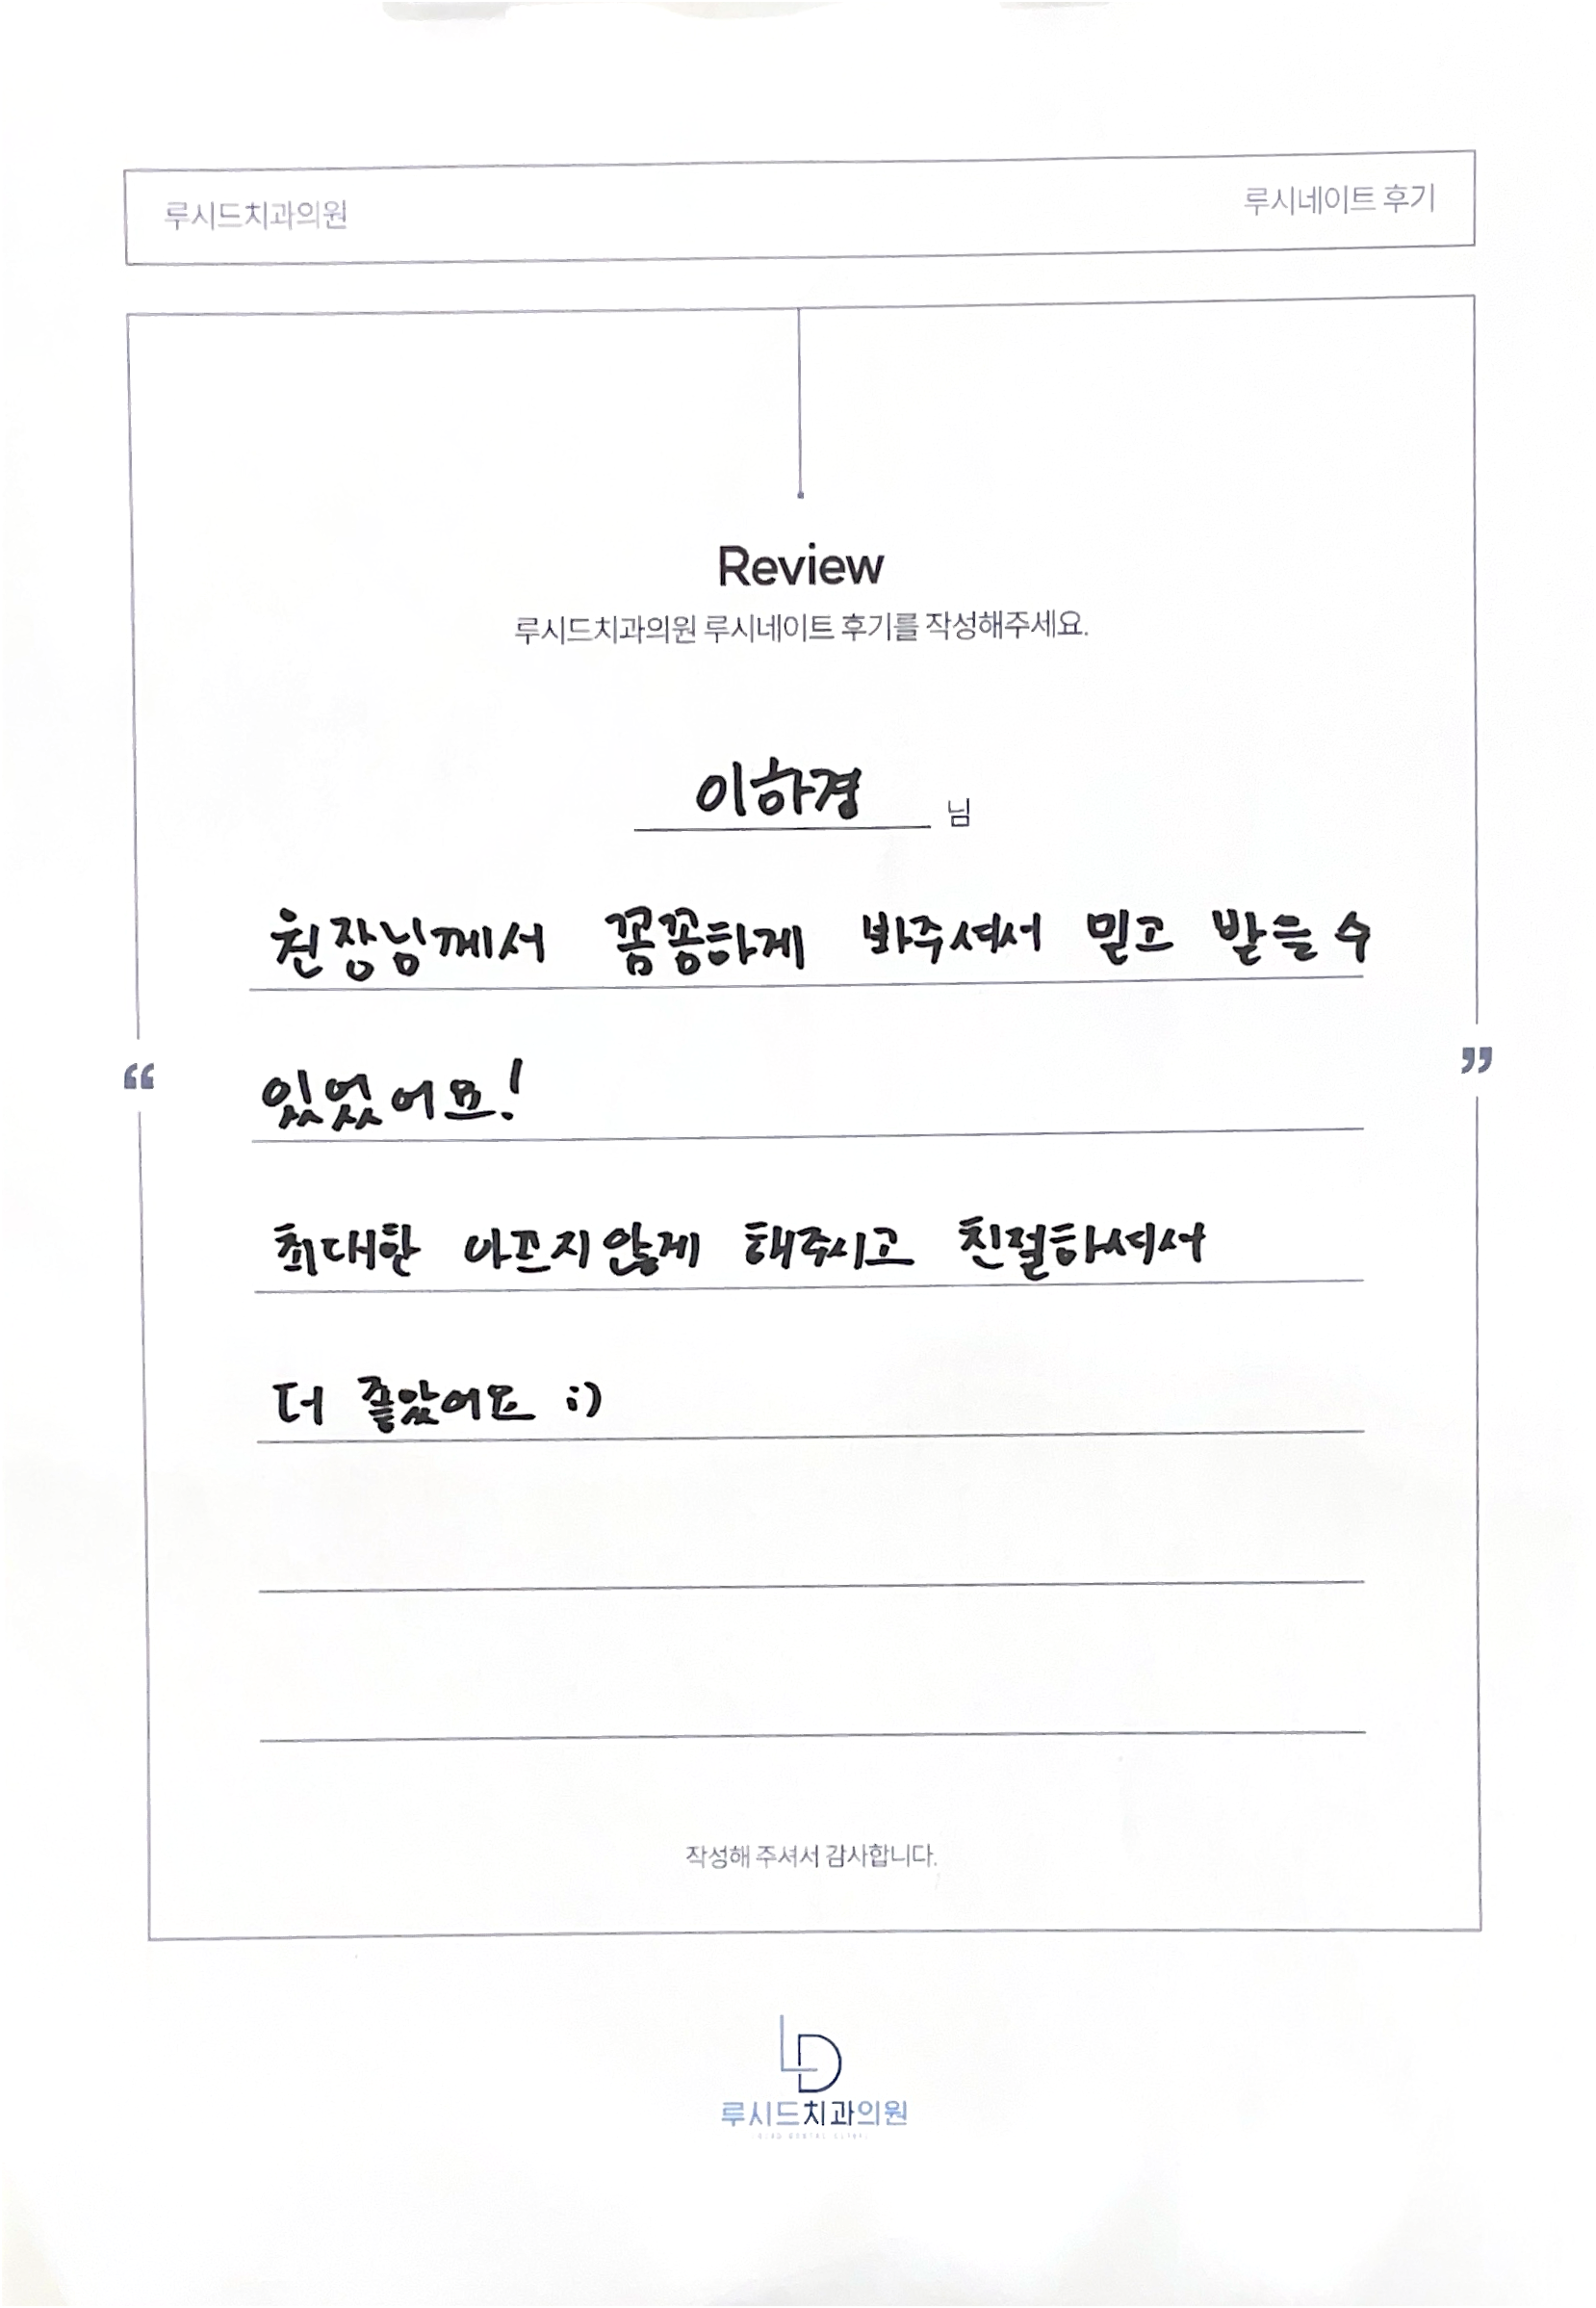 루시드치과의원
루시네이트 후기
Review
루시드치과의원 루시네이트 후기를 작성해주세요.
이하경 님
원장님께서 꼼꼼하게 봐주셔서 믿고 받을 수
있었어요!
최대한 아프지않게 해주시고 친절하셔서
더 좋았어요 :)
작성해 주셔서 감사합니다.
LD
루시드치과의원